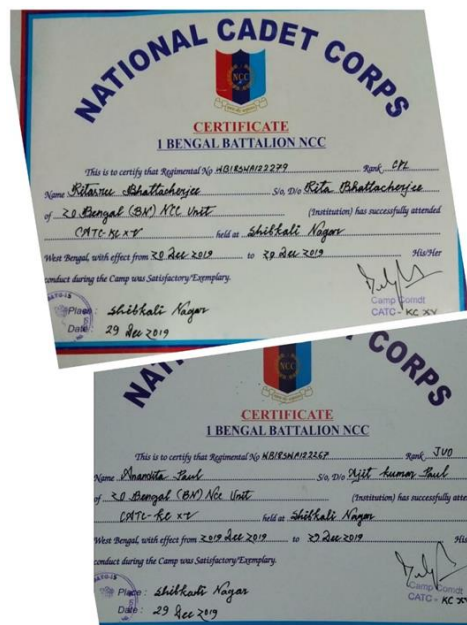 NATIONAL CADET CORPS
NCC
CERTIFICATE
1 BENGAL BATTALION NCC
This is to certify that Regimental No WB18SWA122279 Rank CPL
Name Ritasree Bhattacherjee S/o, D/o Rita Bhattacherjee
of 20 Bengal (BN) NCC Unit (Institution) has successfully attended
CATC-KC XV held at Shibkali Nagar
West Bengal, with effect from 20 Dec 2019 to 29 Dec 2019 His/Her
conduct during the Camp was Satisfactory/Exemplary.
Camp Comdt
CATC - KC XV
Place : Shibkali Nagar
Date : 29 Dec 2019
NAT CORPS
NCC
CERTIFICATE
1 BENGAL BATTALION NCC
This is to certify that Regimental No WB18SWA122267 Rank JUO
Name Anandita Paul S/o, D/o Ajit kumar Paul
of 20 Bengal (BN) Ncc Unit (Institution) has successfully atte
CATC-KC XV held at Shibkali Nagar
West Bengal, with effect from 2019 Dec 2019 to 29 Dec 2019 His
conduct during the Camp was Satisfactory/Exemplary.
Camp Comdt
CATC - KC XV
Place : Shibkali Nagar
Date : 29 Dec 2019